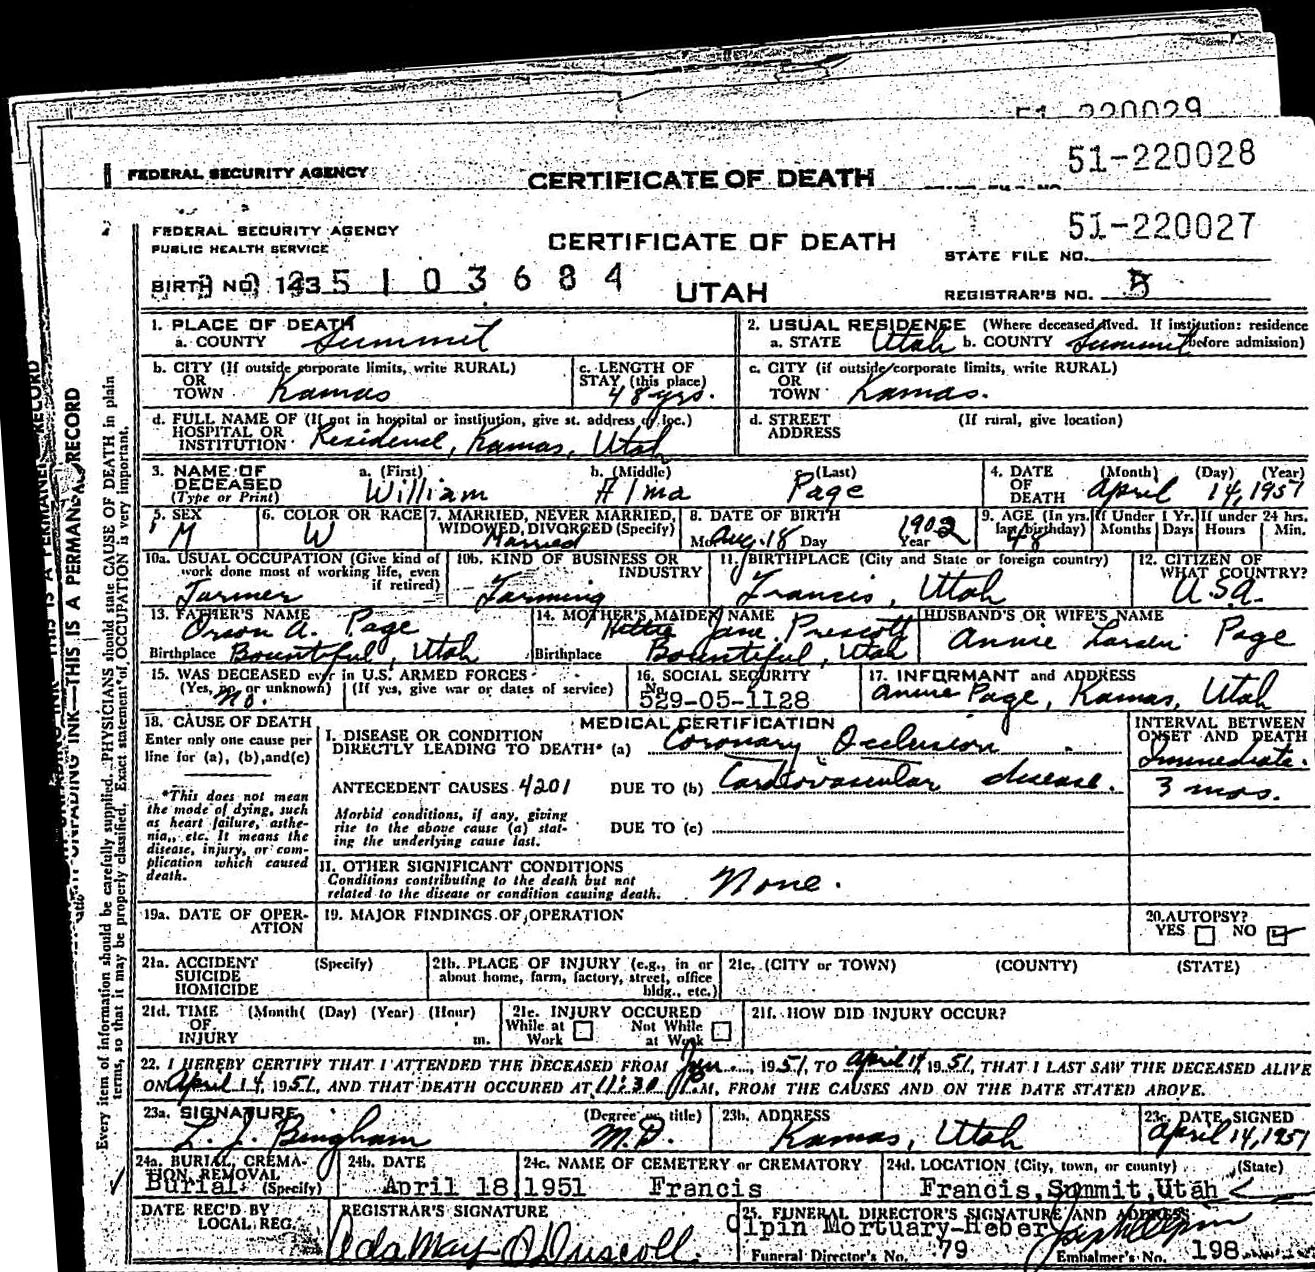 51-220029
51-220028
FEDERAL SECURITY AGENCY
CERTIFICATE OF DEATH
51-220027
FEDERAL SECURITY AGENCY
PUBLIC HEALTH SERVICE
CERTIFICATE OF DEATH
STATE FILE NO.
BIRTH NO. 143 5 1 0 3 6 8 4
UTAH
REGISTRAR'S NO. 5
1. PLACE OF DEATH
a. COUNTY Summit
2. USUAL RESIDENCE (Where deceased lived. If institution: residence before admission)
a. STATE Utah b. COUNTY Summit
b. CITY (If outside corporate limits, write RURAL)
OR
TOWN Kamas
c. LENGTH OF
STAY (this place)
48 yrs.
c. CITY (if outside corporate limits, write RURAL)
OR
TOWN Kamas.
d. FULL NAME OF (If not in hospital or institution, give st. address or loc.)
HOSPITAL OR
INSTITUTION Residence, Kamas, Utah
d. STREET
ADDRESS
(If rural, give location)
3. NAME OF
DECEASED
(Type or Print)
a. (First) b. (Middle) (Last)
William Alma Page
4. DATE
OF
DEATH
(Month) (Day) (Year)
April 14, 1951
5. SEX
M
6. COLOR OR RACE
W
7. MARRIED, NEVER MARRIED,
WIDOWED, DIVORCED (Specify)
Married
8. DATE OF BIRTH
Mo. Aug. 18 Day 1902 Year
9. AGE (In yrs.
last birthday)
48
If Under 1 Yr.
Months Days
If under 24 hrs.
Hours Min.
10a. USUAL OCCUPATION (Give kind of
work done most of working life, even
if retired)
Farmer
10b. KIND OF BUSINESS OR
INDUSTRY
Farming
11. BIRTHPLACE (City and State or foreign country)
Francis, Utah
12. CITIZEN OF
WHAT COUNTRY?
U.S.A.
13. FATHER'S NAME
Orson A. Page
Birthplace Bountiful, Utah
14. MOTHER'S MAIDEN NAME
Hettie Jane Prescott
Birthplace Bountiful, Utah
HUSBAND'S OR WIFE'S NAME
Annie Larsen Page
15. WAS DECEASED ever in U.S. ARMED FORCES
(Yes, no, or unknown) (If yes, give war or dates of service)
No.
16. SOCIAL SECURITY
No.
529-05-1128
17. INFORMANT and ADDRESS
Annie Page, Kamas, Utah
18. CAUSE OF DEATH
Enter only one cause per
line for (a), (b), and (c)
*This does not mean
the mode of dying, such
as heart failure, asthe-
nia, etc. It means the
disease, injury, or com-
plication which caused
death.
MEDICAL CERTIFICATION
I. DISEASE OR CONDITION
DIRECTLY LEADING TO DEATH* (a) Coronary Occlusion
ANTECEDENT CAUSES 4201 DUE TO (b) Cardiovascular disease.
Morbid conditions, if any, giving
rise to the above cause (a) stat-
ing the underlying cause last.
DUE TO (c)
INTERVAL BETWEEN
ONSET AND DEATH
Immediate.
3 mos.
II. OTHER SIGNIFICANT CONDITIONS
Conditions contributing to the death but not
related to the disease or condition causing death.
None.
19a. DATE OF OPER-
ATION
19. MAJOR FINDINGS OF OPERATION
20. AUTOPSY?
YES NO
21a. ACCIDENT (Specify)
SUICIDE
HOMICIDE
21b. PLACE OF INJURY (e.g., in or
about home, farm, factory, street, office
bldg., etc.)
21c. (CITY or TOWN) (COUNTY) (STATE)
21d. TIME (Month( (Day) (Year) (Hour)
OF
INJURY m.
21e. INJURY OCCURED
While at Work Not While at Work
21f. HOW DID INJURY OCCUR?
22. I HEREBY CERTIFY THAT I ATTENDED THE DECEASED FROM Jan., 1951, TO April 14, 1951, THAT I LAST SAW THE DECEASED ALIVE
ON April 14 1951, AND THAT DEATH OCCURED AT 11:30 P.M, FROM THE CAUSES AND ON THE DATE STATED ABOVE.
23a. SIGNATURE (Degree or title)
L. J. Bingham M.D.
23b. ADDRESS
Kamas, Utah
23c. DATE SIGNED
April 14, 1951
24a. BURIAL, CREMA-
TION, REMOVAL
Burial (Specify)
24b. DATE
April 18, 1951
24c. NAME OF CEMETERY or CREMATORY
Francis
24d. LOCATION (City, town, or county) (State)
Francis, Summit, Utah
DATE REC'D BY
LOCAL REG.
REGISTRAR'S SIGNATURE
Ada May O'Driscoll.
25. FUNERAL DIRECTOR'S SIGNATURE AND ADDRESS
Olpin Mortuary-Heber
Funeral Director's No. 79
Embalmer's No. 198
THIS IS A PERMANENT RECORD
UNFADING INK—THIS IS A PERMANENT RECORD
Every item of information should be carefully supplied. PHYSICIANS should state CAUSE OF DEATH in plain
terms, so that it may be properly classified. Exact statement of OCCUPATION is very important.